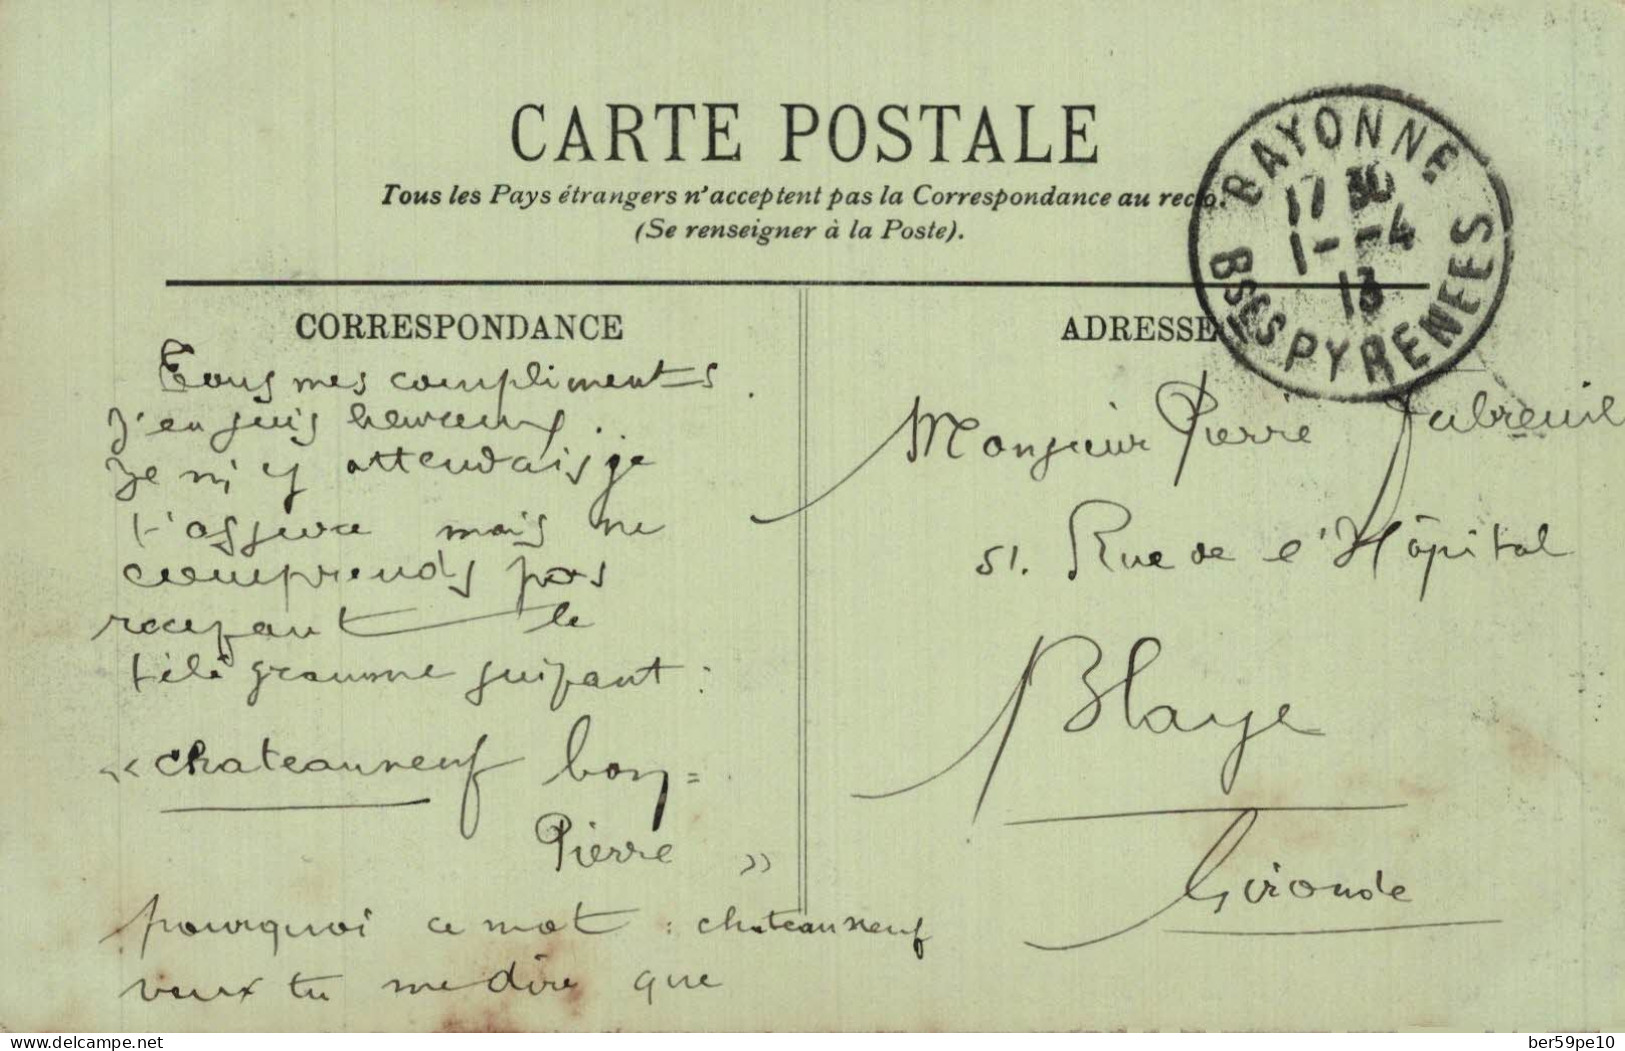 CARTE POSTALE
Tous les Pays étrangers n'acceptent pas la Correspondance au recto.
(Se renseigner à la Poste).
BAYONNE
17 30
1--4
13
BSES PYRENEES
CORRESPONDANCE
Tous mes compliments
J'en suis heureux.
Je m'y attendais je
t'assure mais ne
comprends pas
recevant le
télégramme suivant :
« chateauneuf bon =
Pierre »
pourquoi ce mot : chateauneuf
veux tu me dire que
ADRESSE
Monsieur Pierre Dubreuil
51. Rue de l'Hôpital
Blaye
Gironde
www.delcampe.net
ber59pe10